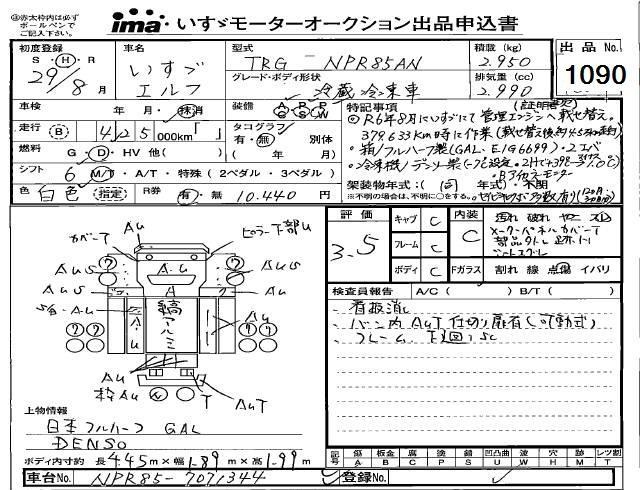 ◎赤太枠内は必ず
ボールペンで
ご記入下さい。
ima いすゞモーターオークション出品申込書
初度登録
S・H・R
29/8月
車名
いすゞ
エルフ
型式
TRG - NPR85AN
グレード・ボディ形状
冷蔵冷凍車
積載(kg)
2.950
排気量(cc)
2.990
出品No.
1090
車検 年・月・抹消
装備 AC PS AG PW
走行 B 425000km「 」
タコグラフ 有・無 別体
燃料 G・D・HV他( )
シフト 6 M/T・A/T・特殊(2ペダル・3ペダル)
色 白色 指定
R券 有・無 10.440円
特記事項 (証明書有)
◎R6年8月にいすゞにて管理エンジンへ載せ替え。
379633Km時に作業(載せ替え後約4.5万km走行)
・箱/フルハーフ製(GAL・E/G6699)・2エバ
・冷凍機/デンソー製
架装物年式:( 同 年式)・不明
※不明の場合は、不明に○をする。
カバーT
Au
ピラー下部U
AuS
A.u
AuS
AuS
A
Au
S有・Au
縞アルミ
Au
Au
枠Au
T
AuT
評価
3.5
キャブ C
フレーム C
ボディ C
内装
C
汚れ 破れ ヤニ スレ
メーターパネルカバーT
部品外し跡
シートスレ
Fガラス 割れ 線 点傷 イバリ
検査員報告 A/C( ) B/T( )
・看板消し
・バン内AuT 仕切り扉有(可動式)
・フレーム、下廻りSC
上物情報
日本フルハーフ GAL
DENSO
ボディ内寸約 長 4.45m×幅 1.89m×高 1.99m
記号 傷 板金 腐 塗 錆 凹凸曲 波 穴 跡 レツ割
A B C P S U W H M T
車台No. NPR85-7071344
登録No.